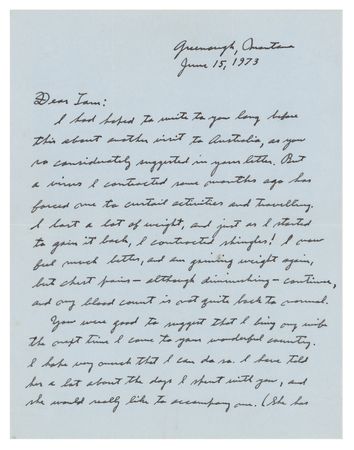 Greenough, Montana
June 15, 1973
Dear Tom:
I had hoped to write to you long before
this about another visit to Australia, as you
so considerately suggested in your letter. But
a virus I contracted some months ago has
forced me to curtail activities and travelling.
I lost a lot of weight, and just as I started
to gain it back, I contracted shingles! I now
feel much better, and am gaining weight again,
but chest pains - although diminishing - continue,
and my blood count is not quite back to normal.
You were good to suggest that I bring my wife
the next time I come to your wonderful country.
I hope very much that I can do so. I have told
her a lot about the days I spent with you, and
she would really like to accompany me. (She has